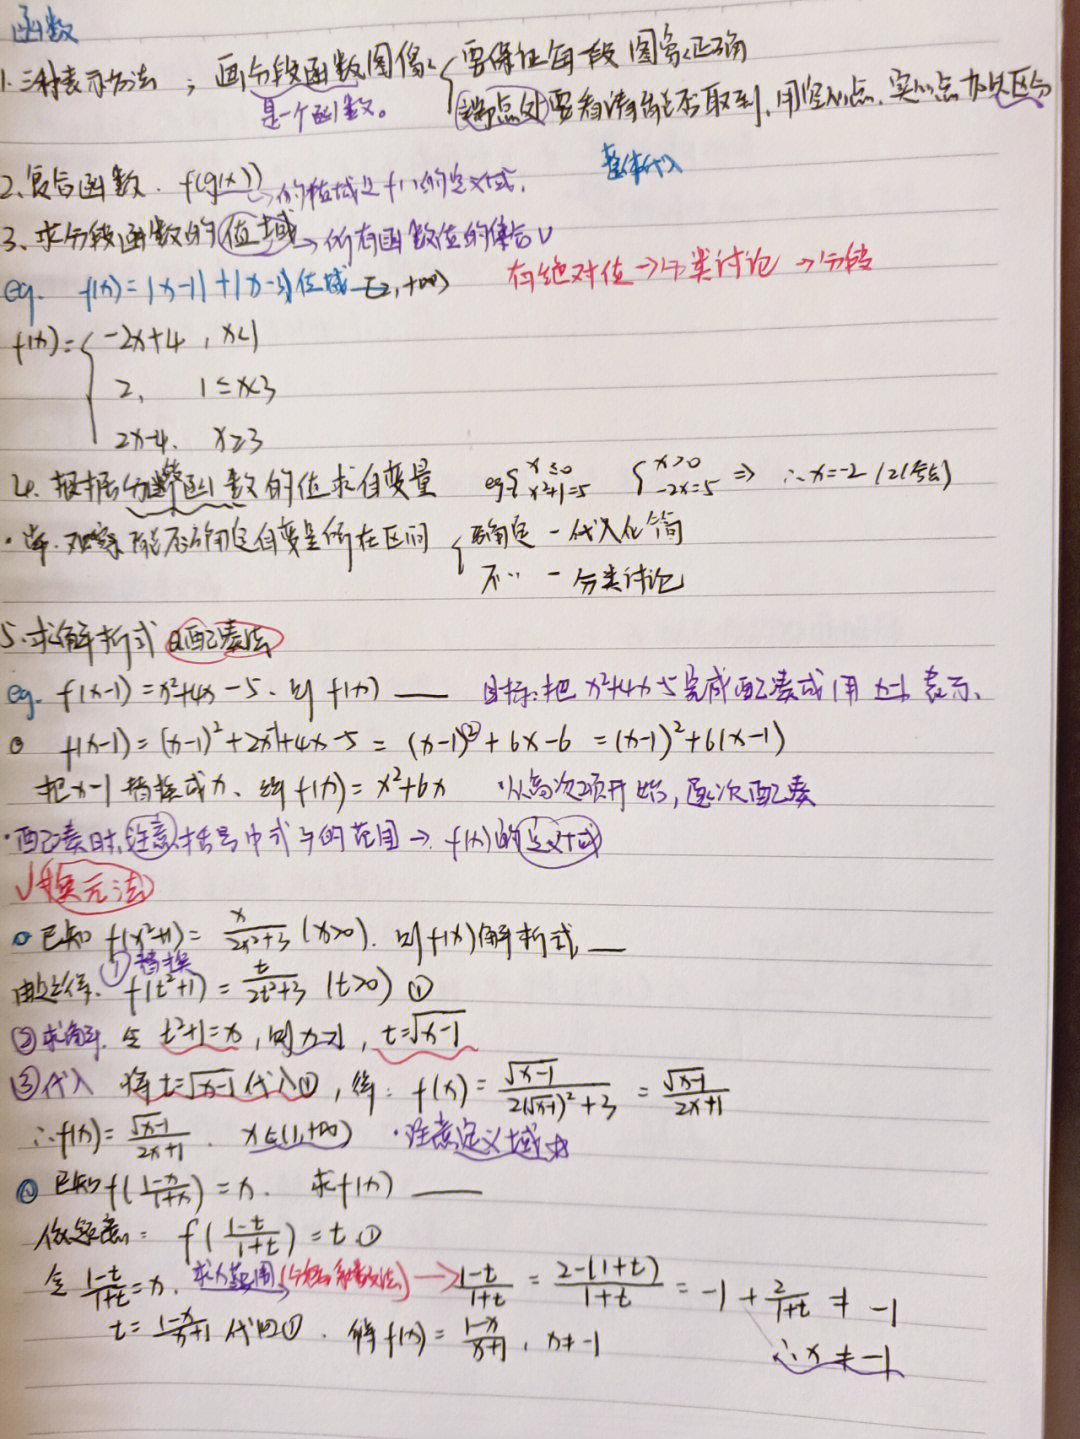 函数
1.三种表示方法；画分段函数图像 { 要保证每一段图象正确
是一个函数。 端点处要看清能否取到，用空心点、实心点加以区分
整体代入
2、复合函数. f(g(x)) 的值域是f( )的定义域.
3、求分段函数的值域→所有函数值的集合∪
有绝对值→分类讨论→分段
eg. f(x)=|x-1|+|x-3|值域 [2,+∞)
f(x)={ -2x+4 , x<1
2, 1≤x<3
2x-4. x≥3
4. 根据分段函数的值求自变量 eg { x≤0 x²+1=5 { x>0 -2x=5 ⇒ ∴x=-2 (2(舍去)
·先.观察能否确定自变量所在区间 { 确定 - 代入化简
不‥ - 分类讨论
5.求解析式 配凑法
eg. f(x-1)=x²+4x-5.则f(x) ___ 目标:把x²+4x-5完成配凑成用x-1表示.
f(x-1)=(x-1)²+2x-1+4x-5=(x-1)²+6x-6=(x-1)²+6(x-1)
把x-1替换成x、得f(x)=x²+6x ·从高次项开始,逐次配凑
·配凑时,注意括号中式子的范围→f(x)的定义域
√换元法
已知f(x²+1)=x/(2x²+3) (x>0). 则f(x)解析式 ___
①替换
由题得. f(t²+1)=t/(2t²+3) (t>0) ①
②求解. 令t²+1=x,则x>1, t=√(x-1)
③代入 将t=√(x-1)代入①,得: f(x)=√(x-1)/(2(√(x-1))²+3)=√(x-1)/(2x+1)
∴f(x)=√(x-1)/(2x+1). x∈(1,+∞) ·注意定义域
已知f((1-x)/(1+x))=x. 求f(x) ___
依题意: f((1-t)/(1+t))=t ①
令(1-t)/(1+t)=x. 求x范围(分离常数法)→(1-t)/(1+t)=(2-(1+t))/(1+t)=-1+2/(1+t)≠-1
t=(1-x)/(x+1)代回①. 得f(x)=(1-x)/(x+1), x≠-1
∴x≠-1